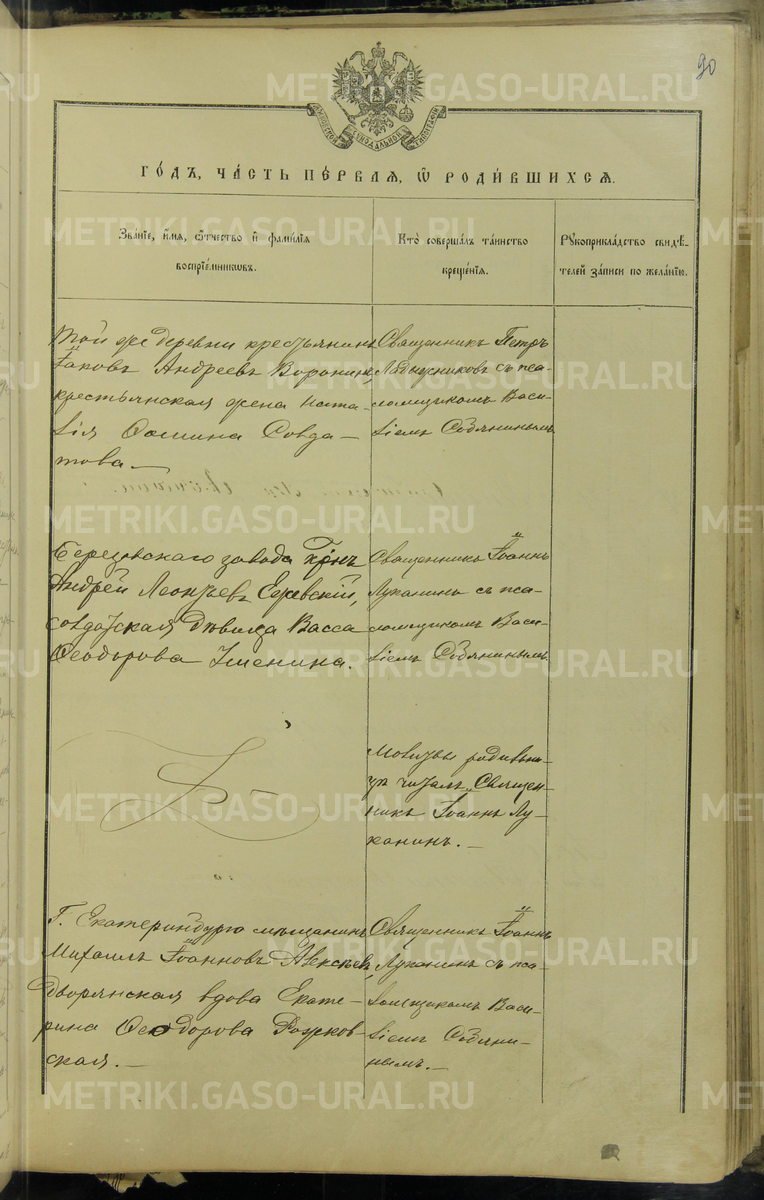 90
METRIKI.GASO-URAL.RU
СѴНОДАЛЬНОЙ
ГО́ДЪ, ЧА́СТЬ ПЕ́РВАѦ, Ѽ РОДИ́ВШИХСѦ.
Зва́нїе, и́мѧ, ѻ҆́тчество и҆ фами́лїѧ
воспрїе́мникωвъ.
Кто̀ соверша́лъ та́инство
креще́нїѧ.
Рꙋкоприкла́дство свидѣ́-
телей за́писи по жела́нїю.
той же деревни крестьянинъ
Іаковъ Андреевъ Воронинъ,
крестьянская жена Ната-
лія Ѳомина Солда-
това.—
Священникъ Петръ
съ пса-
ломщикомъ Васи-
ліемъ Собянинымъ
Березовскаго завода
Андрей Леонтьевъ
солдатская дѣвица Васса
Ѳеодорова
Священникъ Іоаннъ
Луканинъ съ пса-
ломщикомъ Васи-
ліемъ Собянинымъ
Молитвы родильни-
цѣ читалъ Священ-
никъ Іоаннъ Лу-
канинъ.—
Г. Екатеринбурга мѣщанинъ
Михаилъ Іоанновъ
Дворянская вдова Екате-
рина Ѳеодорова Рожков-
ская.—
Священникъ Іоаннъ
Луканинъ съ пса-
ломщикомъ Васи-
ліемъ Собяни-
нымъ.—